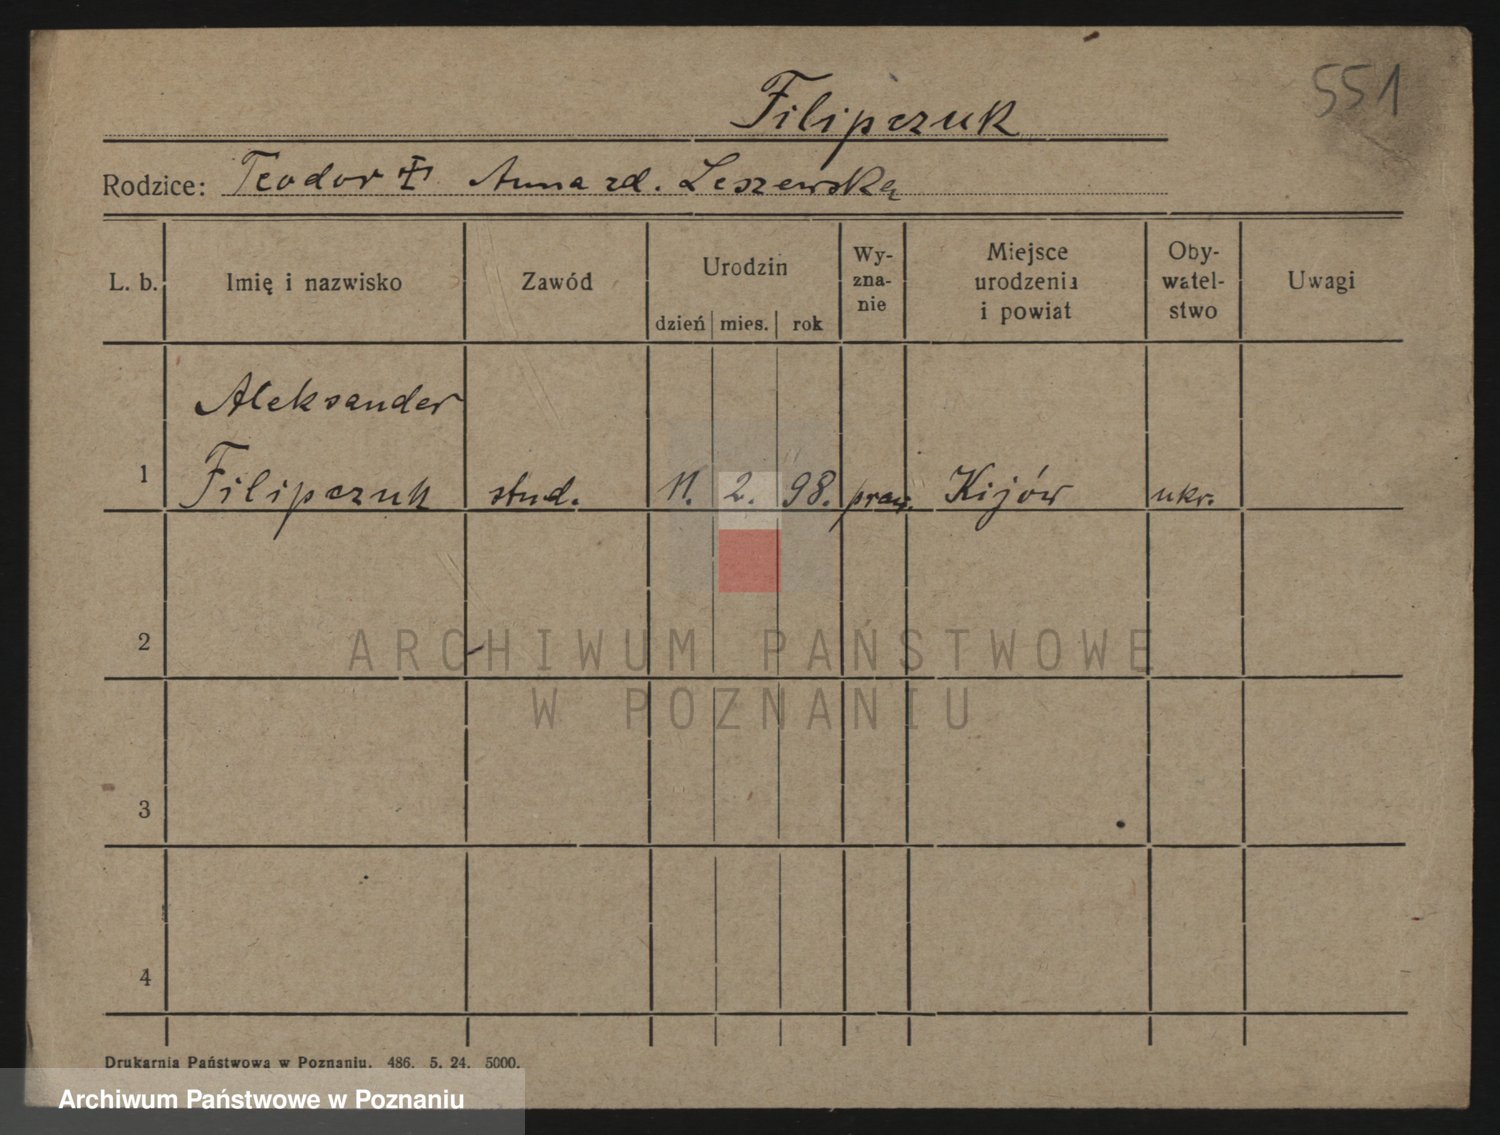 551
Filipczuk
Rodzice: Teodor Anna zd. Leszewska
L. b. Imię i nazwisko Zawód Urodzin dzień mies. rok Wy-zna-nie Miejsce urodzenia i powiat Oby-watel-stwo Uwagi
Aleksander
1 Filipczuk stud. 11. 2. 98. praw. Kijów ukr.
2
ARCHIWUM PAŃSTWOWE
W POZNANIU
3
4
Drukarnia Państwowa w Poznaniu. 486. 5. 24. 5000.
Archiwum Państwowe w Poznaniu